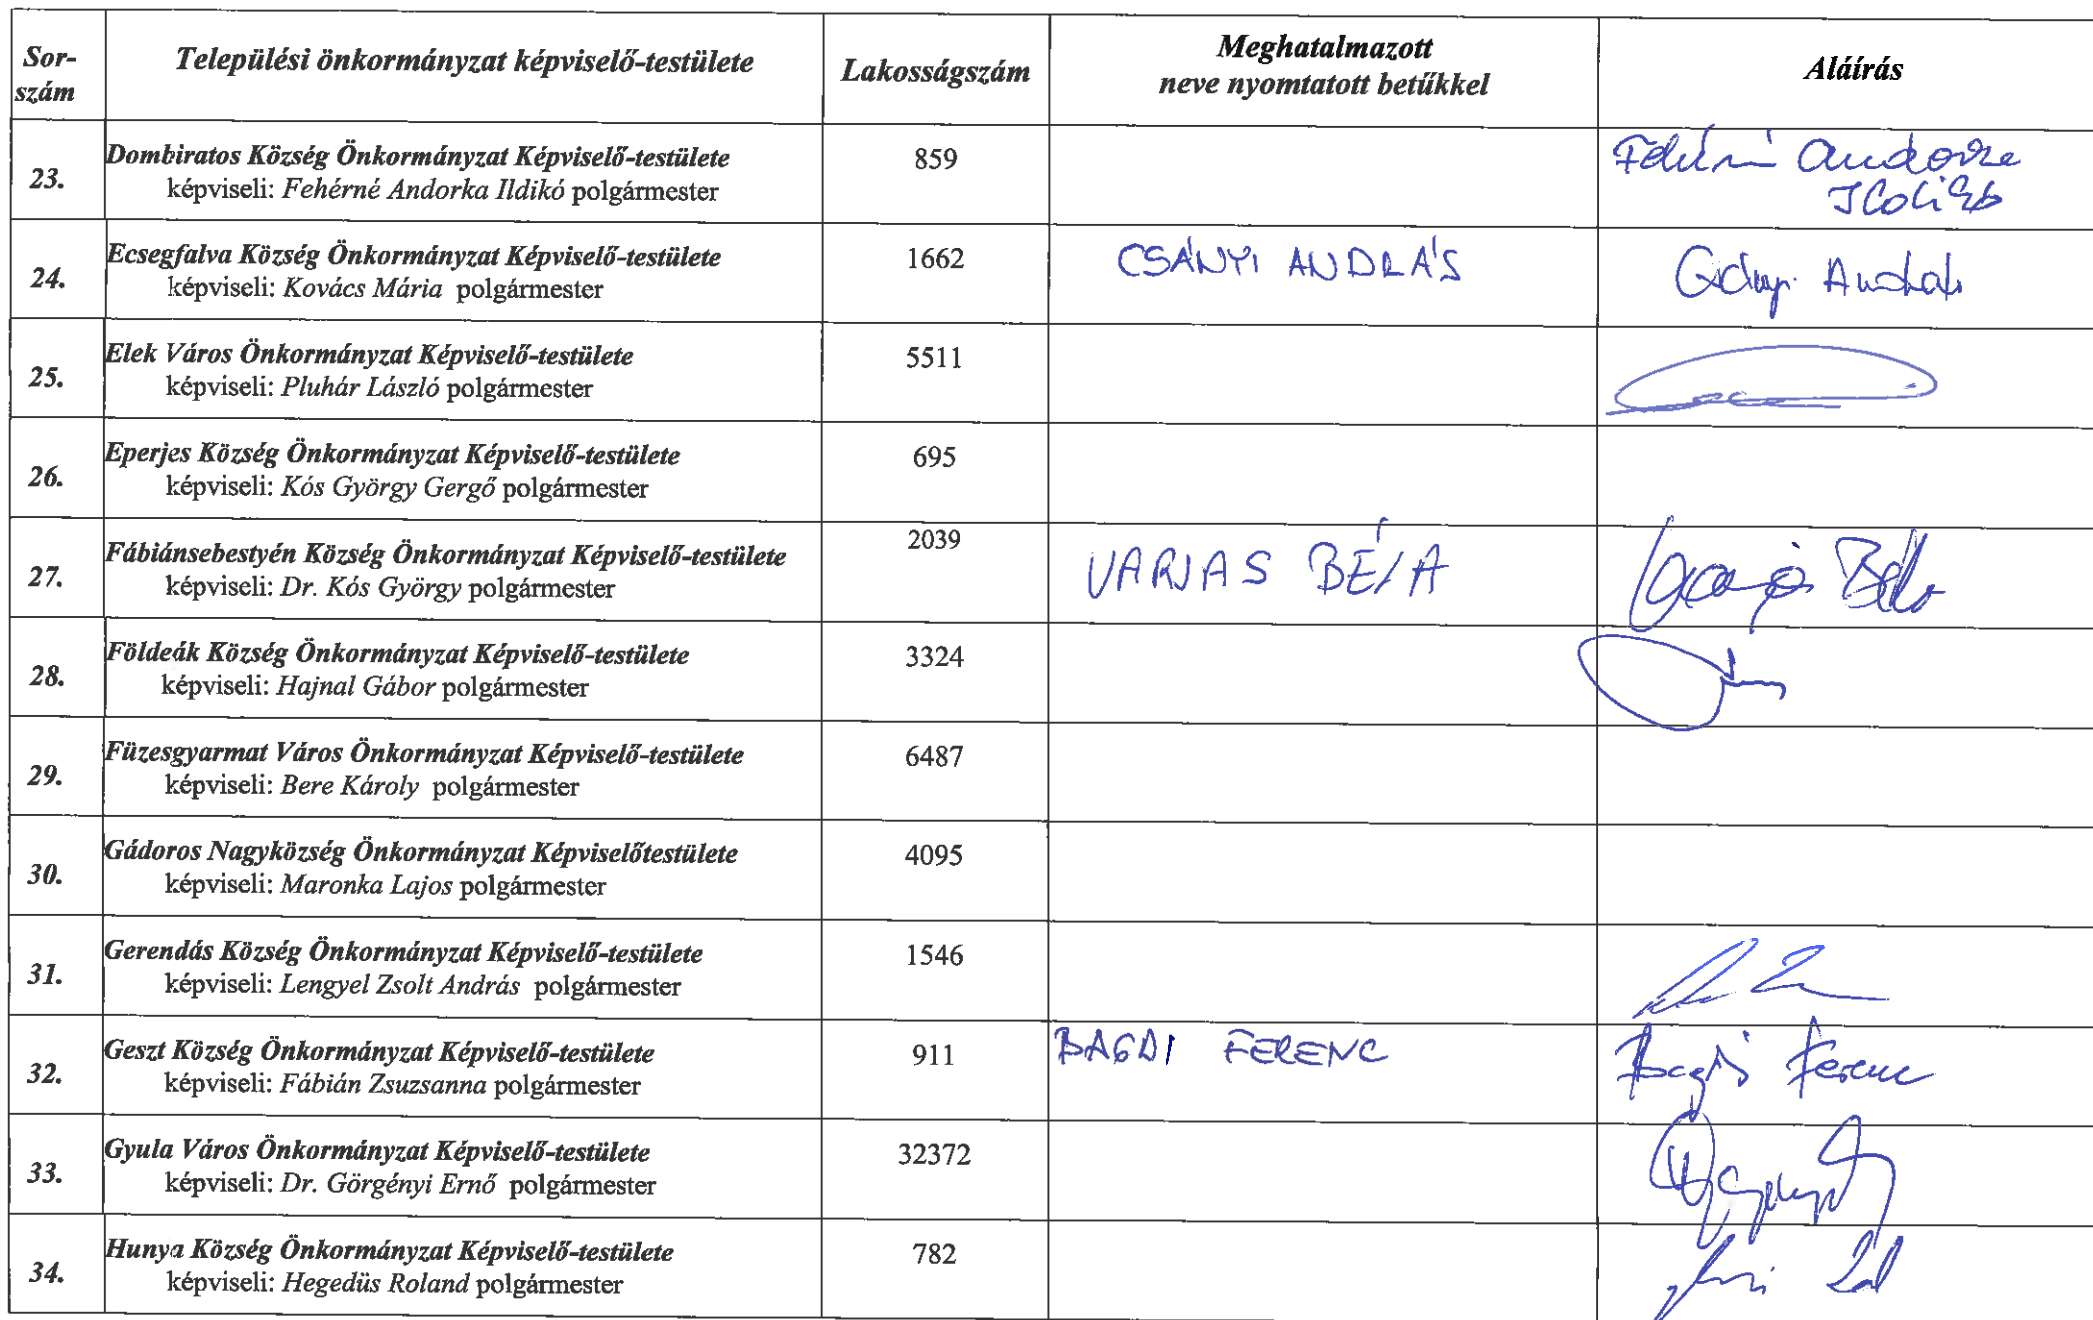 Sor-
szám
Települési önkormányzat képviselő-testülete
Lakosságszám
Meghatalmazott
neve nyomtatott betűkkel
Aláírás
23.
Dombiratos Község Önkormányzat Képviselő-testülete
képviseli: Fehérné Andorka Ildikó polgármester
859
Fehérné Andorka
Ildikó
24.
Ecsegfalva Község Önkormányzat Képviselő-testülete
képviseli: Kovács Mária polgármester
1662
CSÁNYI ANDRÁS
Csányi András
25.
Elek Város Önkormányzat Képviselő-testülete
képviseli: Pluhár László polgármester
5511
26.
Eperjes Község Önkormányzat Képviselő-testülete
képviseli: Kós György Gergő polgármester
695
27.
Fábiánsebestyén Község Önkormányzat Képviselő-testülete
képviseli: Dr. Kós György polgármester
2039
VARJAS BÉLA
Varjas Béla
28.
Földeák Község Önkormányzat Képviselő-testülete
képviseli: Hajnal Gábor polgármester
3324
29.
Füzesgyarmat Város Önkormányzat Képviselő-testülete
képviseli: Bere Károly polgármester
6487
30.
Gádoros Nagyközség Önkormányzat Képviselőtestülete
képviseli: Maronka Lajos polgármester
4095
31.
Gerendás Község Önkormányzat Képviselő-testülete
képviseli: Lengyel Zsolt András polgármester
1546
32.
Geszt Község Önkormányzat Képviselő-testülete
képviseli: Fábián Zsuzsanna polgármester
911
BAGDI FERENC
Bagdi Ferenc
33.
Gyula Város Önkormányzat Képviselő-testülete
képviseli: Dr. Görgényi Ernő polgármester
32372
34.
Hunya Község Önkormányzat Képviselő-testülete
képviseli: Hegedüs Roland polgármester
782